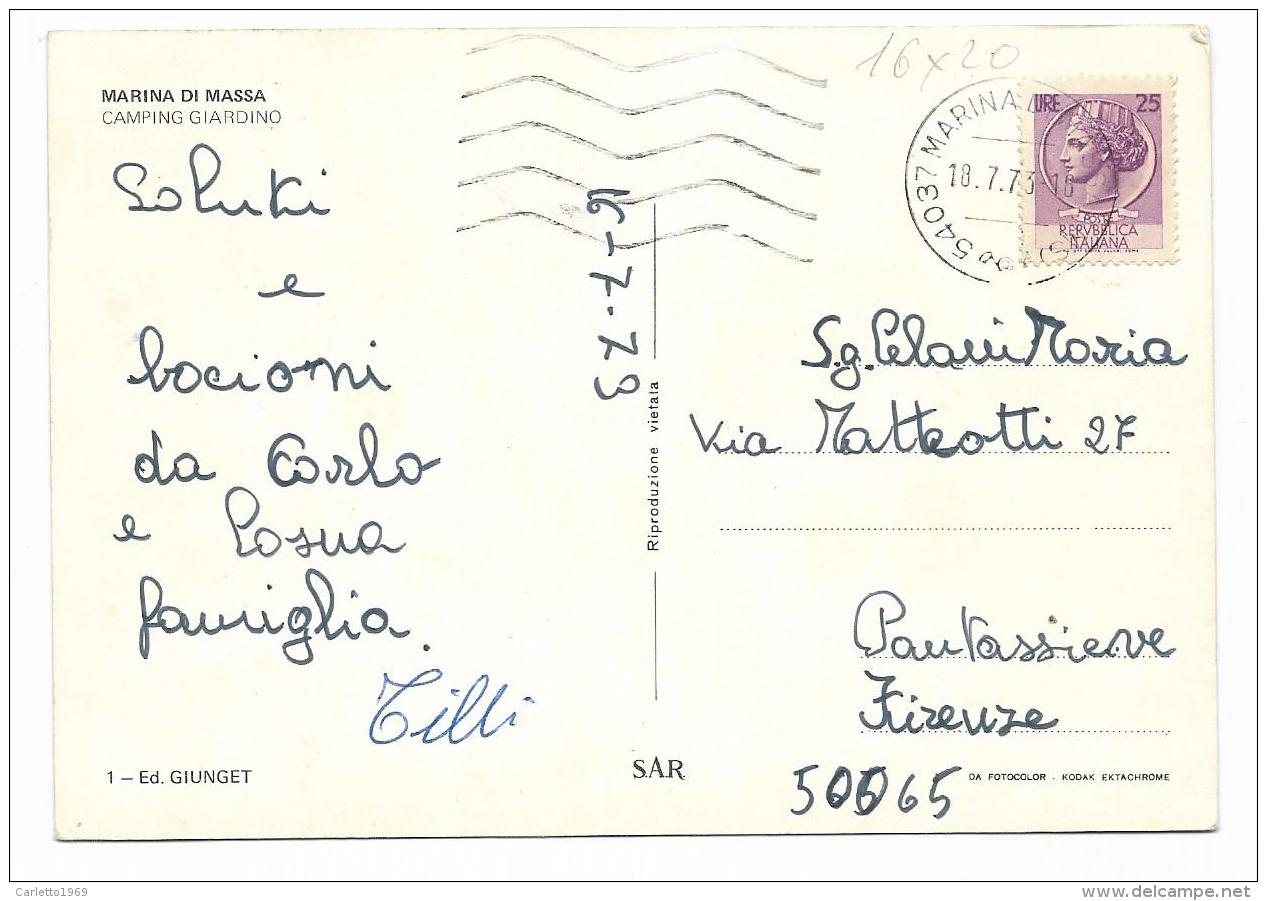 MARINA DI MASSA
CAMPING GIARDINO
Saluti
e
bacioni
da Carlo
e sua
famiglia.
Tilli
1 – Ed. GIUNGET
Riproduzione vietata
S.A.R.
16x20
54037 MARINA DI
18.7.73-18
LIRE 25
POSTE
REPVBBLICA
ITALIANA
Sg. Celani Maria
Via Matteotti 27
Pontassieve
Firenze
50065
DA FOTOCOLOR - KODAK EKTACHROME
Carletto1969
delcampe.net